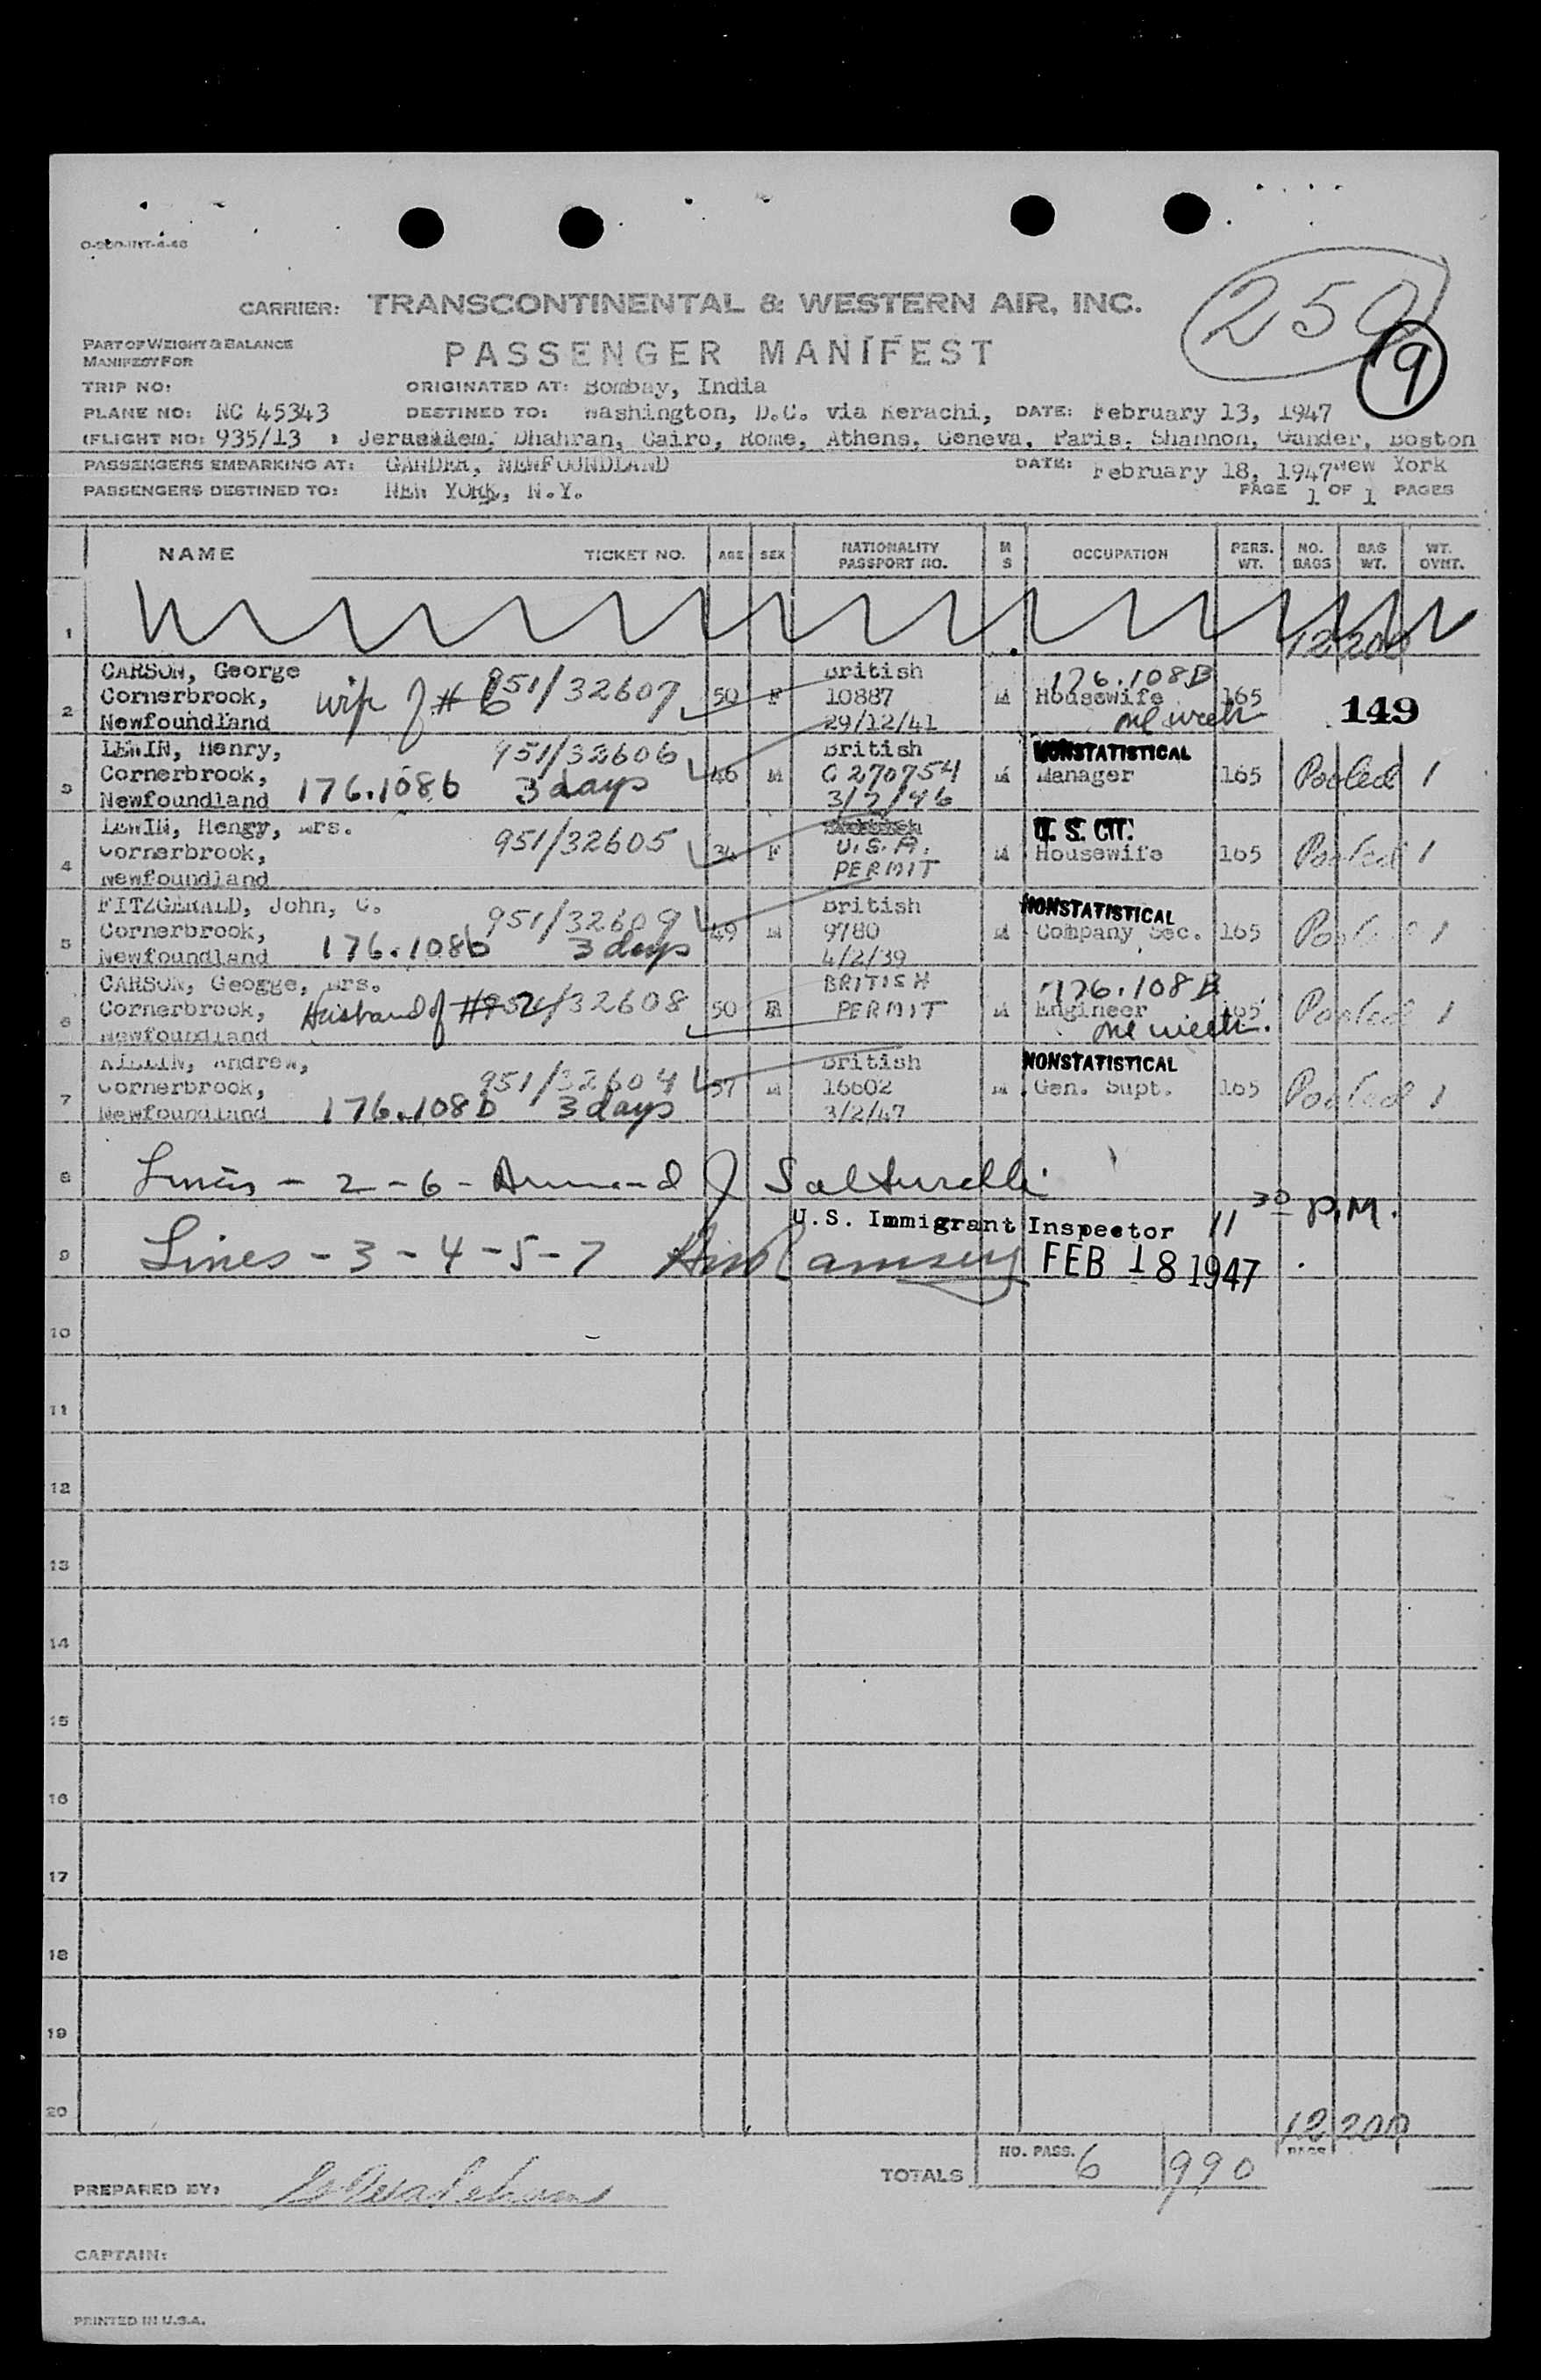 O-960-INT-4-46
250
9
CARRIER: TRANSCONTINENTAL & WESTERN AIR, INC.
PART OF WEIGHT & BALANCE
MANIFEST FOR
PASSENGER MANIFEST
TRIP NO: ORIGINATED AT: Bombay, India
PLANE NO: NC 45343 DESTINED TO: Washington, D.C. via Kerachi, DATE: February 13, 1947
(FLIGHT NO: 935/13 ) Jerusalem, Dhahran, Cairo, Rome, Athens, Geneva, Paris, Shannon, Gander, Boston
PASSENGERS EMBARKING AT: GANDER, NEWFOUNDLAND DATE: February 18, 1947 New York
PASSENGERS DESTINED TO: NEW YORK, N.Y. PAGE 1 OF 1 PAGES
NAME TICKET NO. AGE SEX NATIONALITY PASSPORT NO. M S OCCUPATION PERS. WT. NO. BAGS BAG WT. WT. OVHT.
1 12 200
CARSON, George British 176.108B
2 Cornerbrook, wife of #6 951/32607 50 F 10887 M Housewife 165 149
Newfoundland 29/12/41 one week
LEWIN, Henry, 951/32606 British NONSTATISTICAL
3 Cornerbrook, 46 M C 270754 M Manager 165 Pooled 1
Newfoundland 176.108b 3 days 3/7/46
LEWIN, Hengy, Mrs. U. S. CIT.
4 Cornerbrook, 951/32605 34 F U.S.A. M Housewife 165 Pooled 1
Newfoundland PERMIT
FITZGERALD, John, C. 951/32609 British NONSTATISTICAL
5 Cornerbrook, 49 M 9780 M Company Sec. 165 Pooled 1
Newfoundland 176.108b 3 days 4/2/39
CARSON, Geogge, Mrs. BRITISH 176.108B
6 Cornerbrook, Husband of #2 951/32608 50 M PERMIT M Engineer 165 Pooled 1
Newfoundland one week.
KILLIN, Andrew, British NONSTATISTICAL
7 Cornerbrook, 951/32604 57 M 16602 M Gen. Supt. 165 Pooled 1
Newfoundland 176.108b 3 days 3/2/47
8 Lines - 2 - 6 - Armand J Salturelli
U.S. Immigrant Inspector 11 30 P.M.
9 Lines - 3 - 4 - 5 - 7 Ramsey FEB 18 1947
10
11
12
13
14
15
16
17
18
19
20 12 200
TOTALS NO. PASS. 6 990 BAGS
PREPARED BY:
CAPTAIN:
PRINTED IN U.S.A.